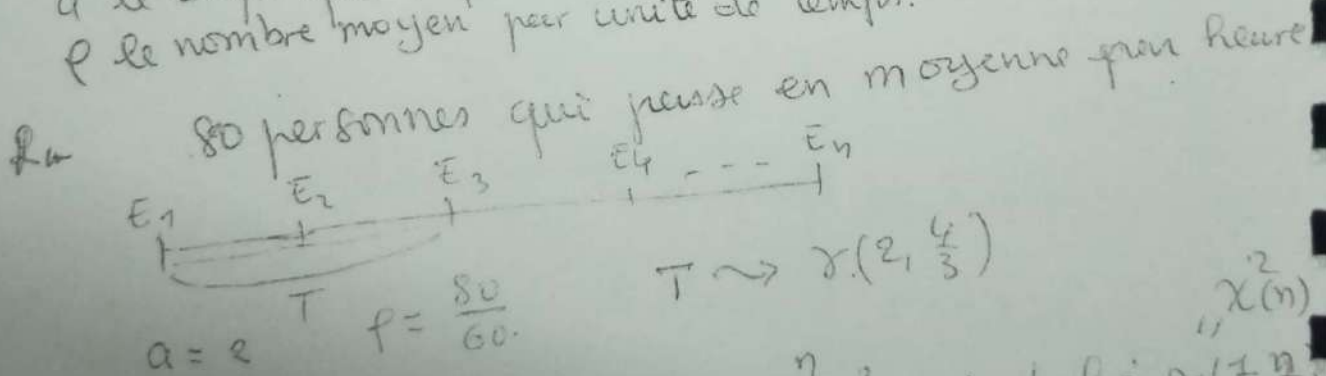 ρ le nombre moyen par unité de temps.
80 personnes qui passe en moyenne par heure
E1 E2 E3 E4 - - - En
T
T ⤳ γ(2, 4/3)
a = 2 ρ = 80/60.
χ²(n)